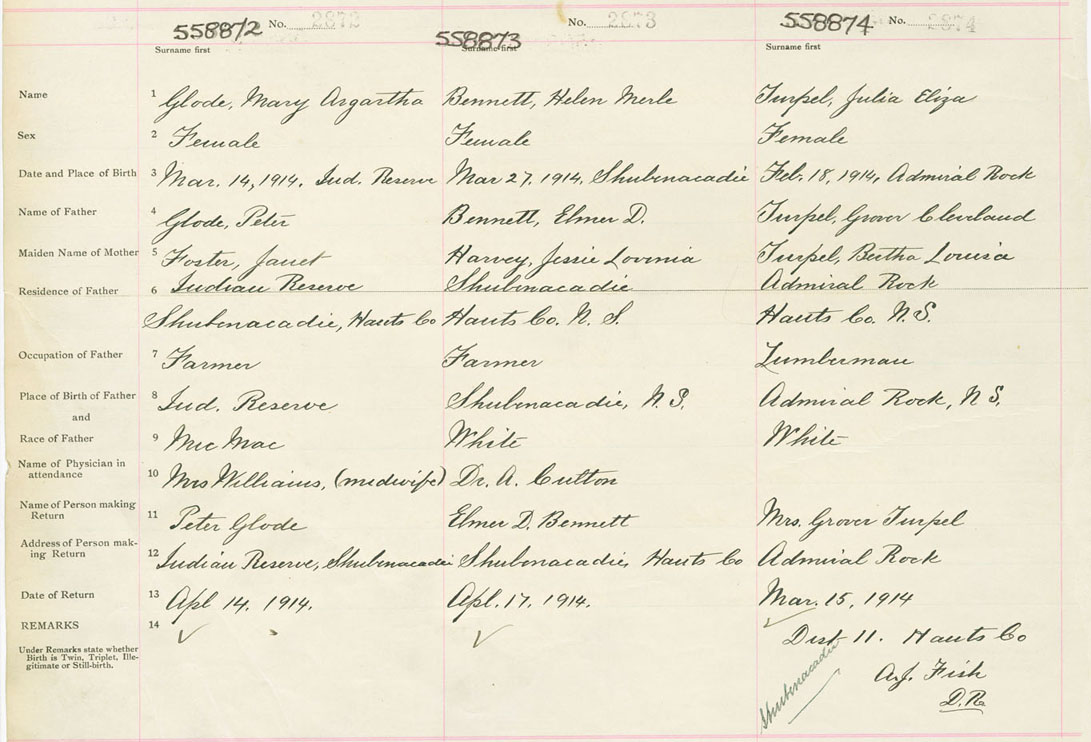 558872 No. 2872 558873 No. 2873 558874 No. 2874
Surname first Surname first Surname first
Name 1 Glode, Mary Argartha Bennett, Helen Merle Turpel, Julia Eliza
Sex 2 Female Female Female
Date and Place of Birth 3 Mar. 14, 1914. Ind. Reserve Mar 27, 1914, Shubenacadie Feb. 18, 1914, Admiral Rock
Name of Father 4 Glode, Peter Bennett, Elmer D. Turpel, Grover Cleveland
Maiden Name of Mother 5 Foster, Janet Harvey, Jessie Lovinia Turpel, Bertha Louisa
Residence of Father 6 Indian Reserve Shubenacadie Admiral Rock
Shubenacadie, Hants Co Hants Co. N. S. Hants Co. N.S.
Occupation of Father 7 Farmer Farmer Lumberman
Place of Birth of Father 8 Ind. Reserve Shubenacadie, N.S. Admiral Rock, N S.
and
Race of Father 9 Mic Mac White White
Name of Physician in
attendance 10 Mrs Williams, (midwife) Dr. A. Cutton
Name of Person making
Return 11 Peter Glode Elmer D. Bennett Mrs. Grover Turpel
Address of Person mak-
ing Return 12 Indian Reserve, Shubenacadie Shubenacadie, Hants Co Admiral Rock
Date of Return 13 Apl 14, 1914. Apl. 17, 1914. Mar. 15, 1914
REMARKS 14
Under Remarks state whether
Birth is Twin, Triplet, Ille-
gitimate or Still-birth.
Dist 11. Hants Co
Shubenacadie
A.J. Fish
D.R.